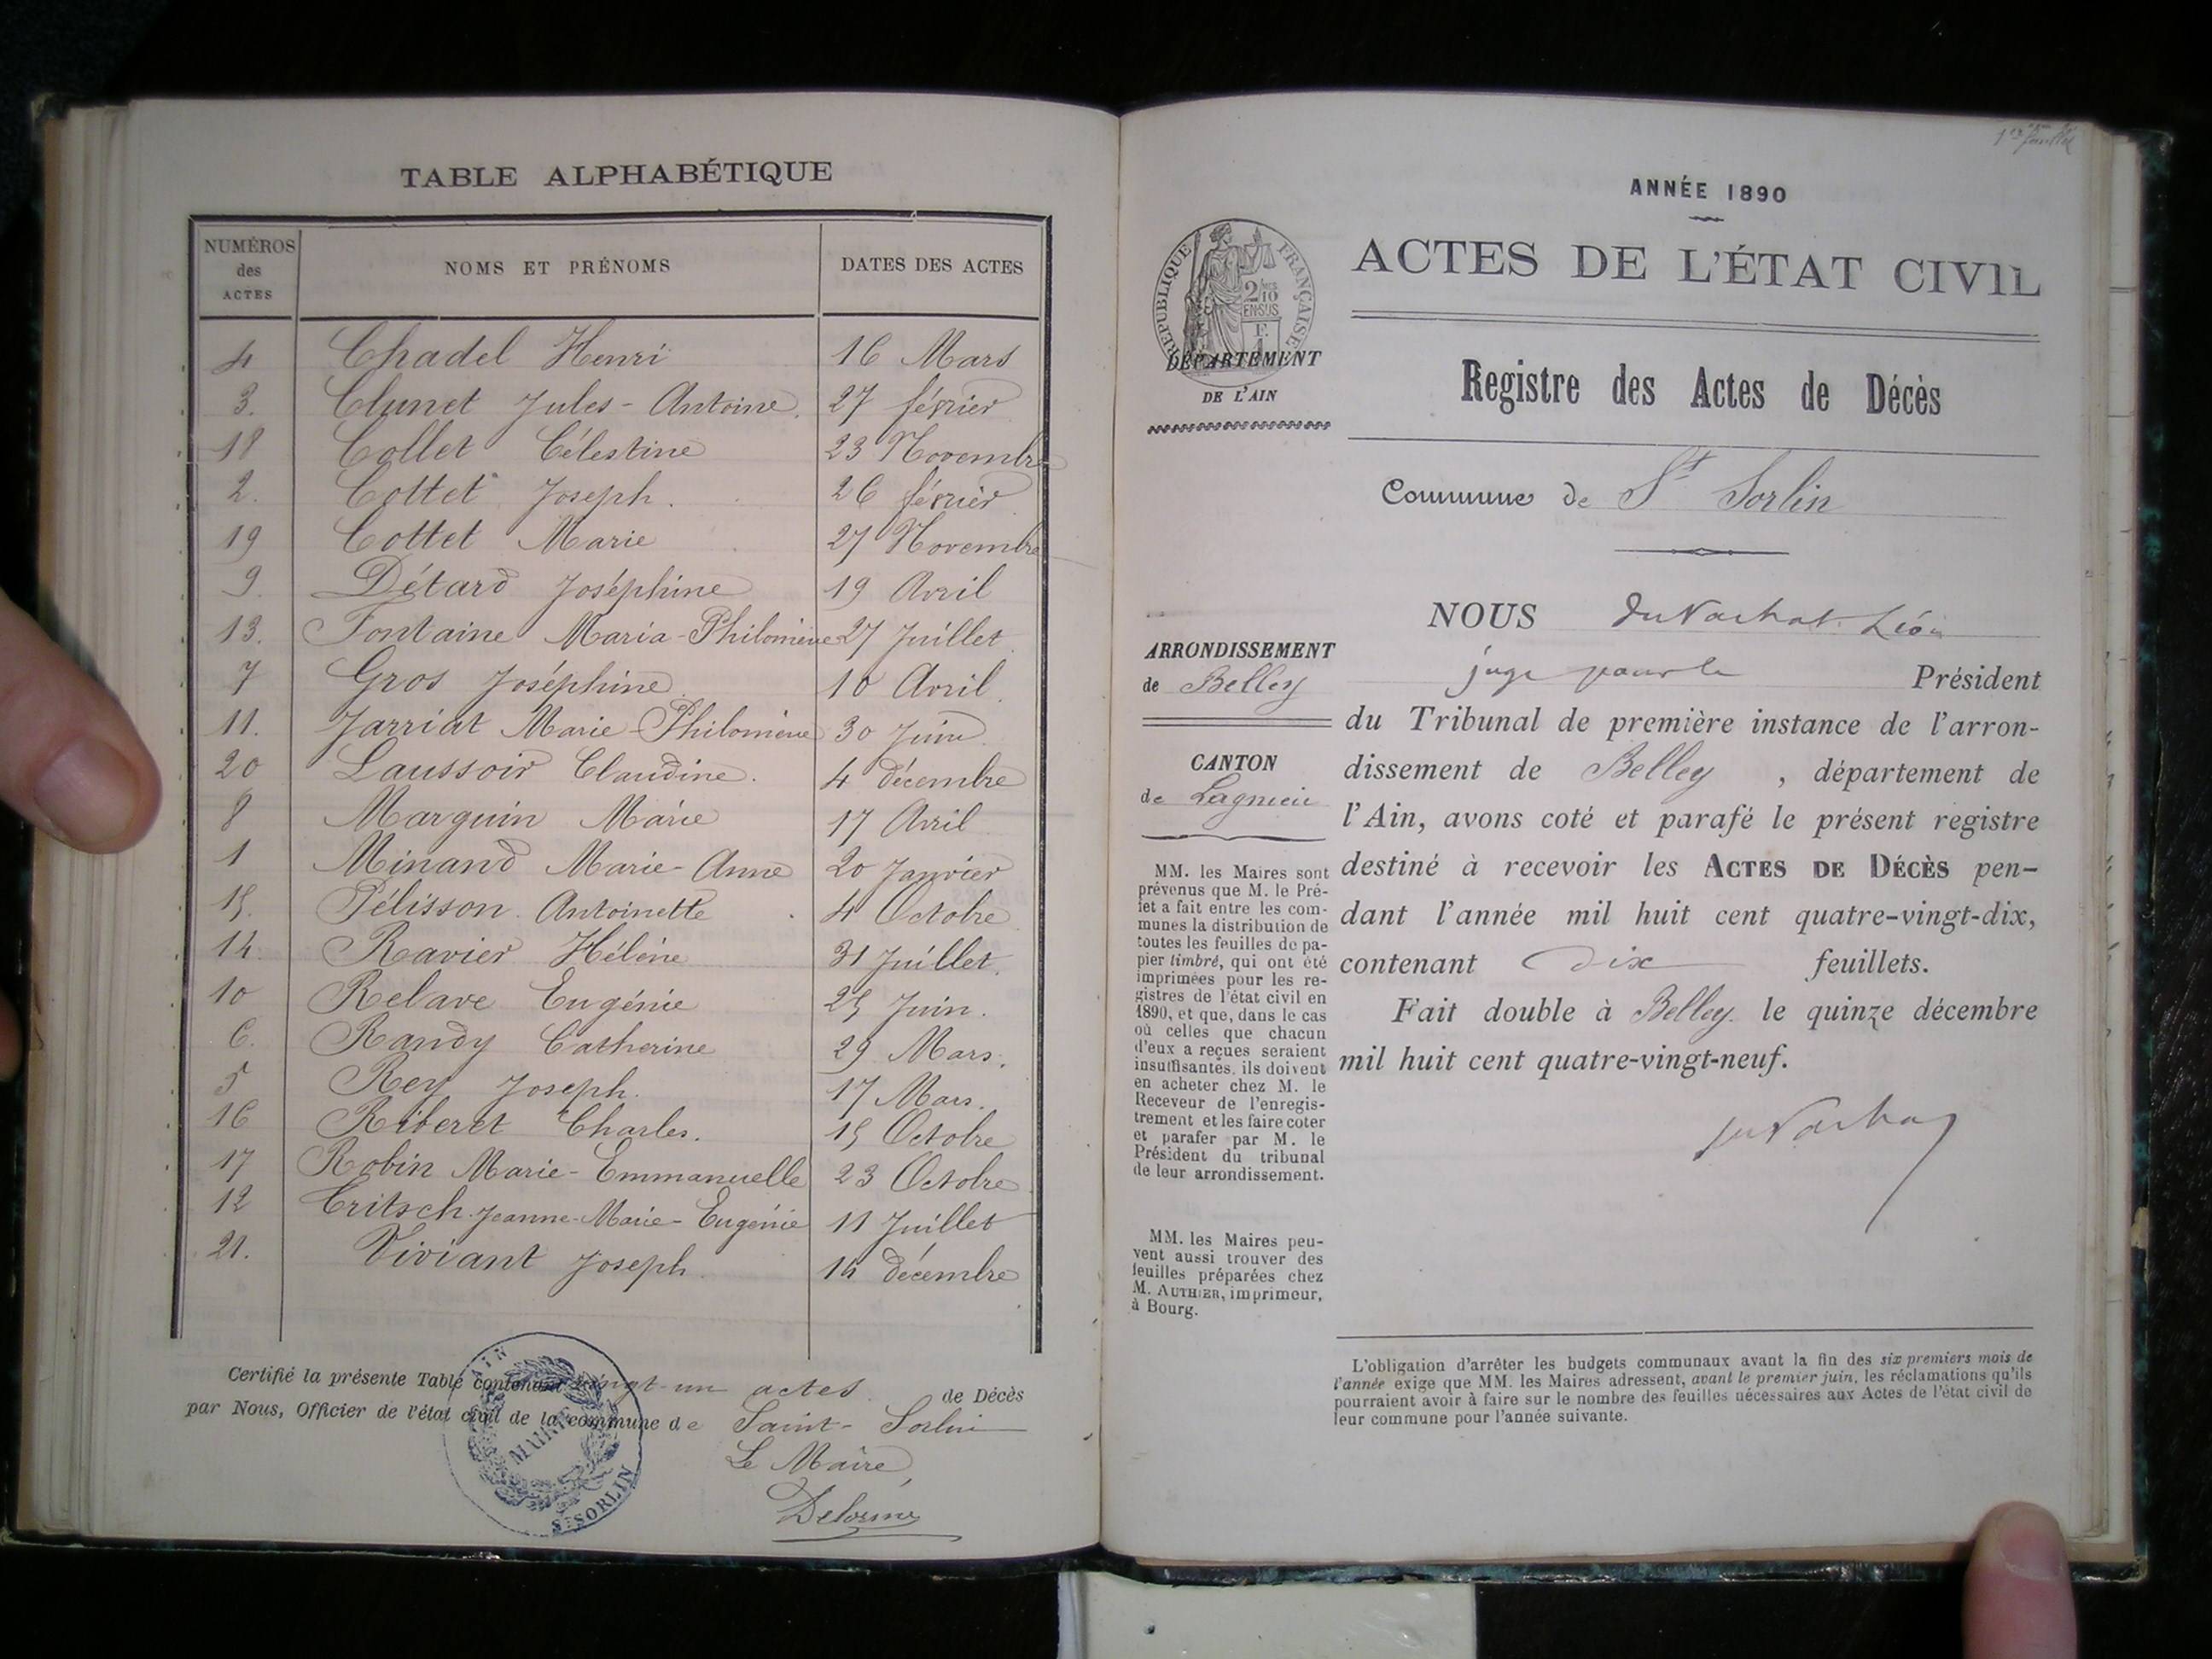 TABLE ALPHABÉTIQUE
NUMÉROS des ACTES NOMS ET PRÉNOMS DATES DES ACTES
4 Chadel Henri 16 Mars
3. Clunet Jules-Antoine. 27 février
18 Collet Célestine 23 Novembre
2. Cottet Joseph. 26 février
19 Cottet Marie 27 Novembre
9. Détard Joséphine 19 Avril
13. Fontaine Maria-Philomène 27 Juillet.
7 Gros Joséphine 10 Avril.
11. Jarriat Marie Philomène 30 Juin.
20 Laussoir Claudine. 4 décembre
8 Marguin Marie 17 Avril
1 Minand Marie-Anne 20 Janvier
15. Pélisson Antoinette 4 Octobre
14. Ravier Hélène 31 Juillet.
10 Relave Eugénie 25 Juin.
6. Randy Catherine 29 Mars.
5 Rey Joseph. 17 Mars.
16 Riberet Charles. 15 Octobre
17 Robin Marie-Emmanuelle 23 Octobre
12 Critsch Jeanne-Marie-Eugénie 11 Juillet
21. Viviant Joseph. 14 décembre
Certifié la présente Table contenant vingt-un actes de Décès
par Nous, Officier de l'état civil de la commune de Saint-Sorlin
Le Maire,
Delorme
AIN
MAIRIE
ST SORLIN
ANNÉE 1890
ACTES DE L'ÉTAT CIVIL
RÉPUBLIQUE FRANÇAISE
2/10 EN SUS
DÉPARTEMENT
DE L'AIN
Registre des Actes de Décès
Commune de St Sorlin
ARRONDISSEMENT
de Belley
CANTON
de Lagnieu
MM. les Maires sont
prévenus que M. le Pré-
fet a fait entre les com-
munes la distribution de
toutes les feuilles de pa-
pier timbré, qui ont été
imprimées pour les re-
gistres de l'état civil en
1890, et que, dans le cas
où celles que chacun
d'eux a reçues seraient
insuffisantes, ils doivent
en acheter chez M. le
Receveur de l'enregis-
trement et les faire coter
et parafer par M. le
Président du tribunal
de leur arrondissement.
MM. les Maires peu-
vent aussi trouver des
feuilles préparées chez
M. AUTHIER, imprimeur,
à Bourg.
NOUS du Vachat Léon
juge pour le Président
du Tribunal de première instance de l'arron-
dissement de Belley, département de
l'Ain, avons coté et parafé le présent registre
destiné à recevoir les ACTES DE DÉCÈS pen-
dant l'année mil huit cent quatre-vingt-dix,
contenant dix feuillets.
Fait double à Belley le quinze décembre
mil huit cent quatre-vingt-neuf.
du Vachat
L'obligation d'arrêter les budgets communaux avant la fin des six premiers mois de
l'année exige que MM. les Maires adressent, avant le premier juin, les réclamations qu'ils
pourraient avoir à faire sur le nombre des feuilles nécessaires aux Actes de l'état civil de
leur commune pour l'année suivante.